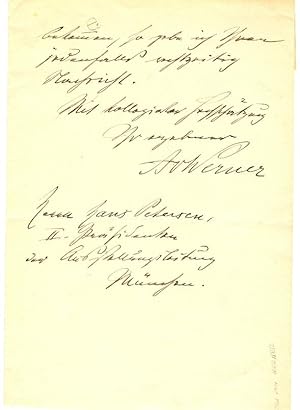 bekommen, so gebe ich Ihnen
jedenfalls rechtzeitig
Nachricht.
Mit kollegialer Hochschätzung
Ihr ergebener
AvWerner
Herrn Hans Petersen,
II. Präsidenten
der Ausstellungsleitung
München.